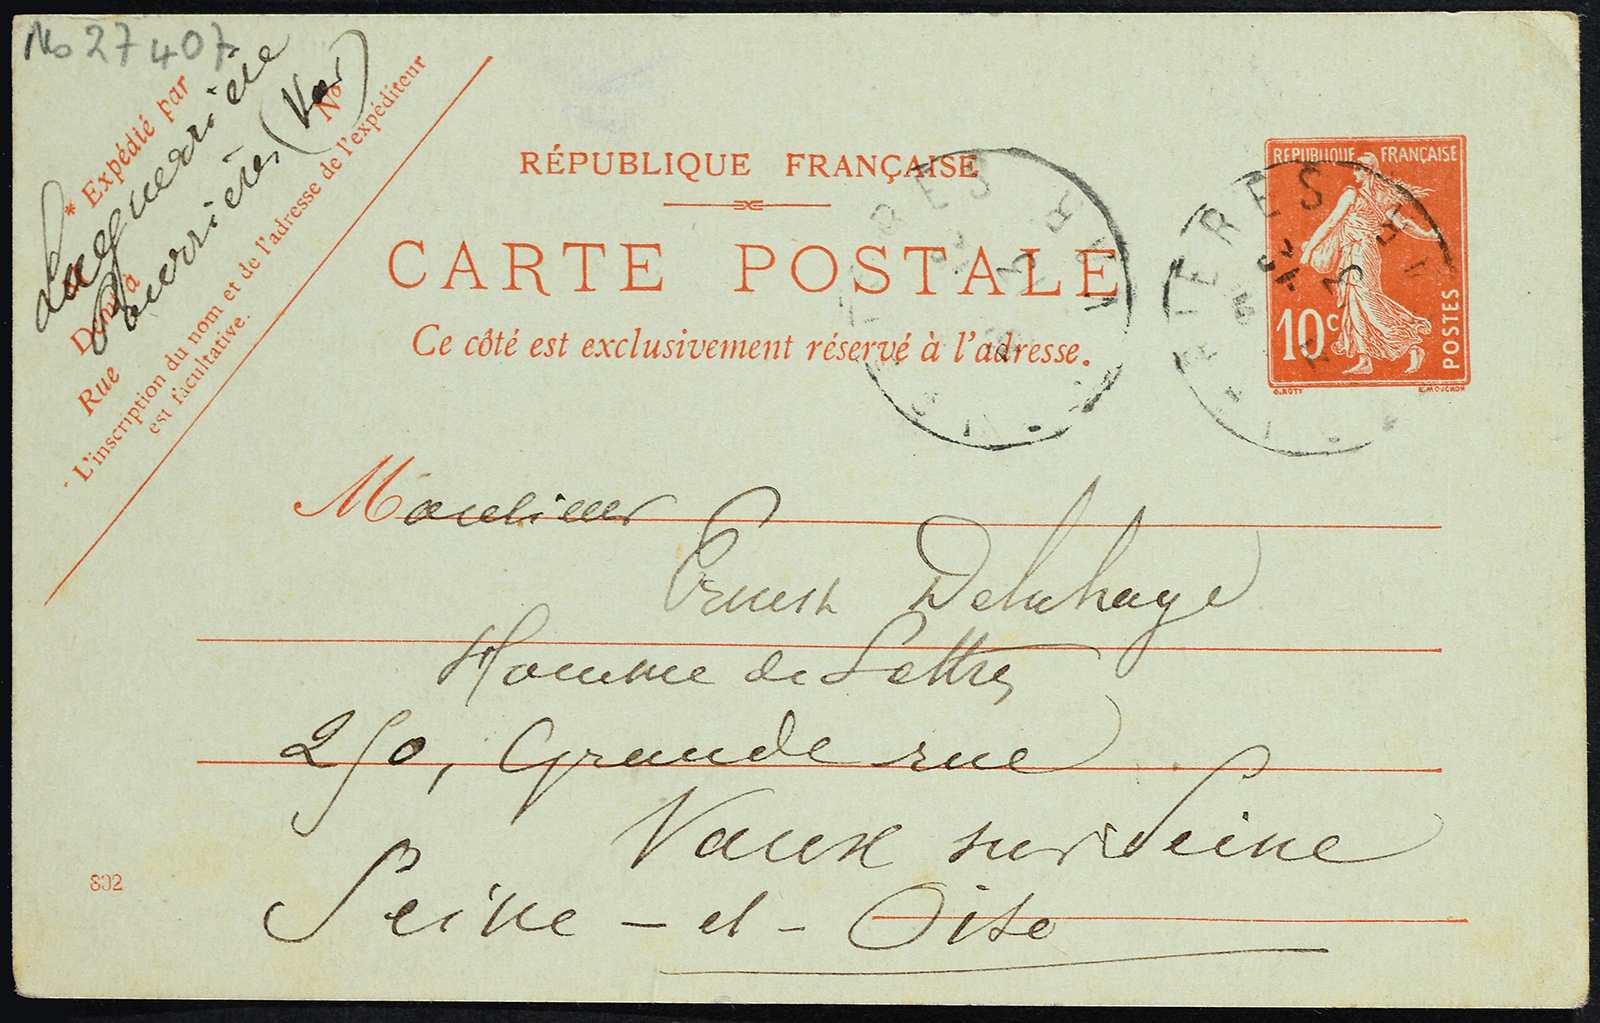 Ms 27407
* Expédié par
Laguerrière
Nº
Demt à
Pourrières (Var)
Rue
L'inscription du nom et de l'adresse de l'expéditeur
est facultative.
RÉPUBLIQUE FRANÇAISE
CARTE POSTALE
Ce côté est exclusivement réservé à l'adresse.
RÉPUBLIQUE FRANÇAISE
10c
POSTES
O. ROTY
L. MOUCHON
Monsieur
Ernest Delahaye
Homme de Lettres
250, Grande rue
Vaux sur Seine
Seine-et-Oise
802